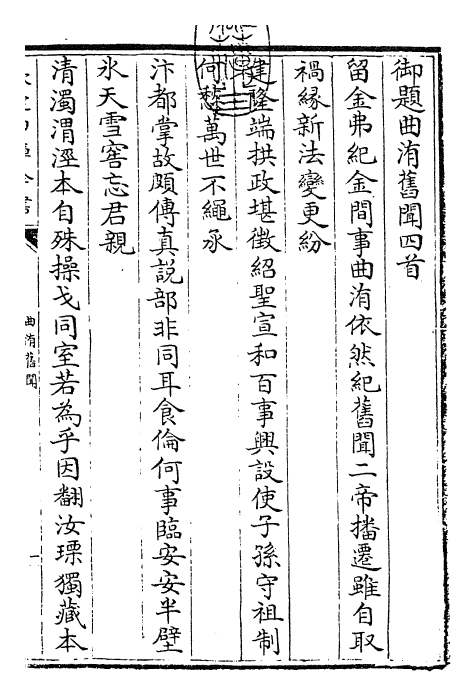 御題曲洧舊聞四首
留金弗紀金間事曲洧依然紀舊聞二帝播遷雖自取
禍緣新法變更紛
建隆端拱政堪徵紹聖宣和百事興設使子孫守祖制
何愁萬世不繩承
汴都掌故頗傳真説部非同耳食倫何事臨安安半壁
氷天雪窖忘君親
清濁渭涇本自殊操戈同室若為乎因翻汝瑮獨藏本
曲洧舊聞
一